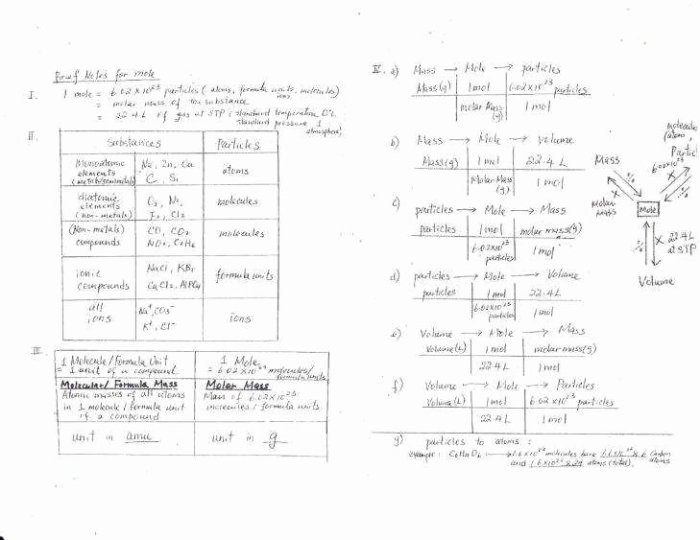 Brief Notes for mole
I. 1 mole = 6.02 x 10²³ particles (atoms, formula units, molecules)
ions
= molar mass of the substance
= 22.4L of gas at STP (standard temperature 0°C,
standard pressure 1
atmosphere)
II.
Substances | Particles
Monoatomic elements (metals/ | Na, Zn, Cu C, Si | atoms
diatomic elements (non-metals) | O₂, N₂, I₂, Cl₂ | molecules
(Non-metals) compounds | CO, CO₂ NO₂, | molecules
ionic compounds | NaCl, KBr CaCl₂, AlPO₄ | formula units
all ions | K⁺, Cl⁻ | ions
III.
1 Molecule/Formula Unit = 1 unit of a compound | 1 Mole = 6.02 x 10²³ molecules/ formula units
Molecular/Formula Mass | Molar Mass
Atomic masses of all atoms in 1 molecule/formula unit of a compound | Mass of 6.02 x 10²³ molecules/formula units
unit in amu | unit in g
IV. a) Mass → Mole → particles
Mass(g) | 1 mol | 6.02 x 10²³ particles
molar Mass (g) | 1 mol
b) Mass → Mole → volume
Mass(g) | 1 mol | 22.4 L
Molar Mass (g) | 1 mol
c) particles → Mole → Mass
particles | 1 mol | molar mass(g)
6.02 x 10²³ particles | 1 mol
d) particles → Mole → Volume
particles | 1 mol | 22.4L
6.02 x 10²³ particles | 1 mol
e) Volume → Mole → Mass
Volume(L) | 1 mol | molar mass(g)
22.4L | 1 mol
f) Volume → Mole → Particles
Volume(L) | 1 mol | 6.02 x 10²³ particles
22.4L | 1 mol
g) particles to atoms :
example :
molecules have
carbon atoms
and
atoms (total).
molecule
(atom,
Particle
Mass
6.02 x 10²³
Molar
mass
Mole
X 22.4L
at STP
Volume